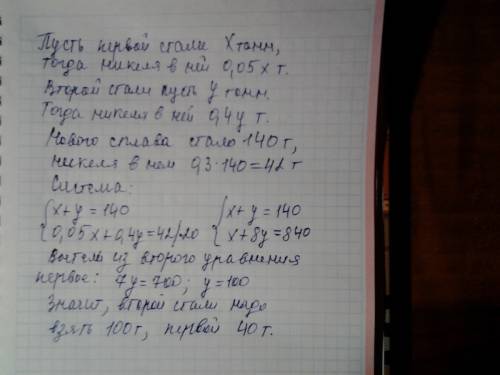 Пусть первой стали x тонн,
тогда никеля в ней 0,05x т.
Второй стали пусть y тонн.
Тогда никеля в ней 0,4y т.
Нового сплава стало 140 т,
никеля в нем 0,3·140=42 т
Система:
{x+y=140 {x+y=140
{0,05x+0,4y=42/·20 {x+8y=840
Вычтем из второго уравнения
первое: 7y=700; y=100
Значит, второй стали надо
взять 100т, первой 40т.